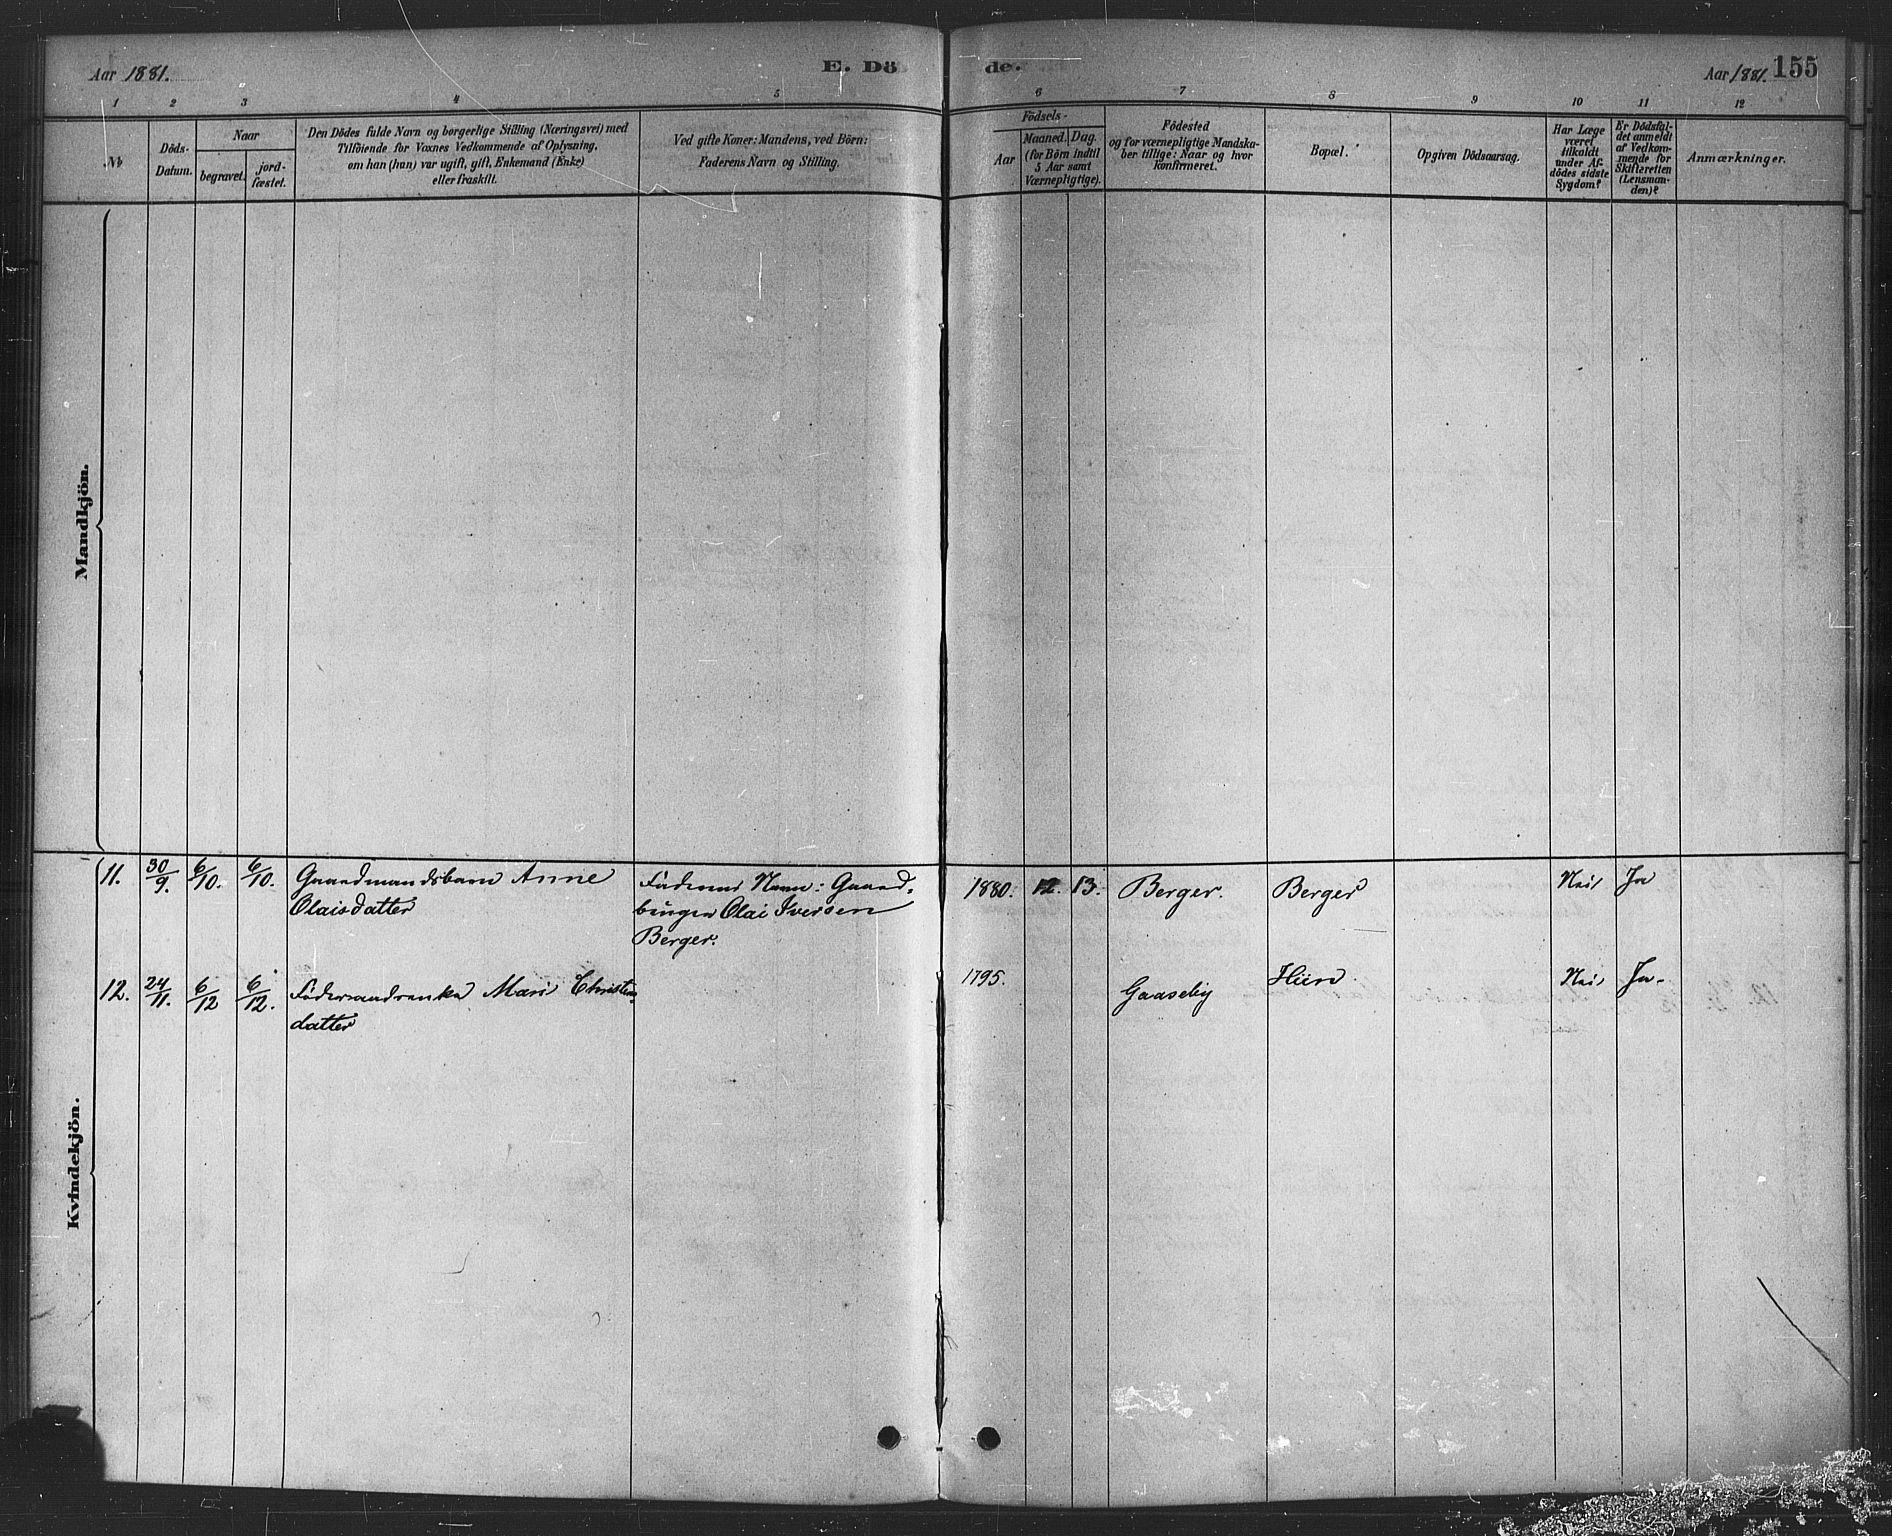 Aar 1881.
E. Döde.
Aar 1881. 155
1 2 3 4 5 6 7 8 9 10 11 12
No
Döds-
Datum.
Naar
begravet.
jord-
fæstet.
Den Dödes fulde Navn og borgerlige Stilling (Næringsvei) med
Tilföiende for Voxnes Vedkommende af Oplysning,
om han (hun) var ugift, gift, Enkemand (Enke)
eller fraskilt.
Ved gifte Koner: Mandens, ved Börn:
Faderens Navn og Stilling.
Födsels-
Aar
Maaned. Dag.
(for Börn indtil
5 Aar samt
Værnepligtige).
Födested
og for værnepligtige Mandska-
ber tillige: Naar og hvor
konfirmeret.
Bopæl.
Opgiven Dödsaarsag.
Har Læge
været
tilkaldt
under Af-
dödes sidste
Sygdom?
Er Dödsfal-
det anmeldt
af Vedkom-
mende for
Skifteretten
(Lensman-
den)?
Anmærkninger.
Mandkjön.
Kvindekjön.
11. 30/9. 6/10. 6/10. Gaardmandsbarn Anne
Olaisdatter
Faderens Navn: Gaard-
bruger Olai Iversen
Berger.
1880. 12. 13. Berger. Berger Nei Ja
12. 24/11. 6/12 6/12. Föderaadsenke Mari Christens
datter
1795. Gaaseby Hiin Nei Ja.